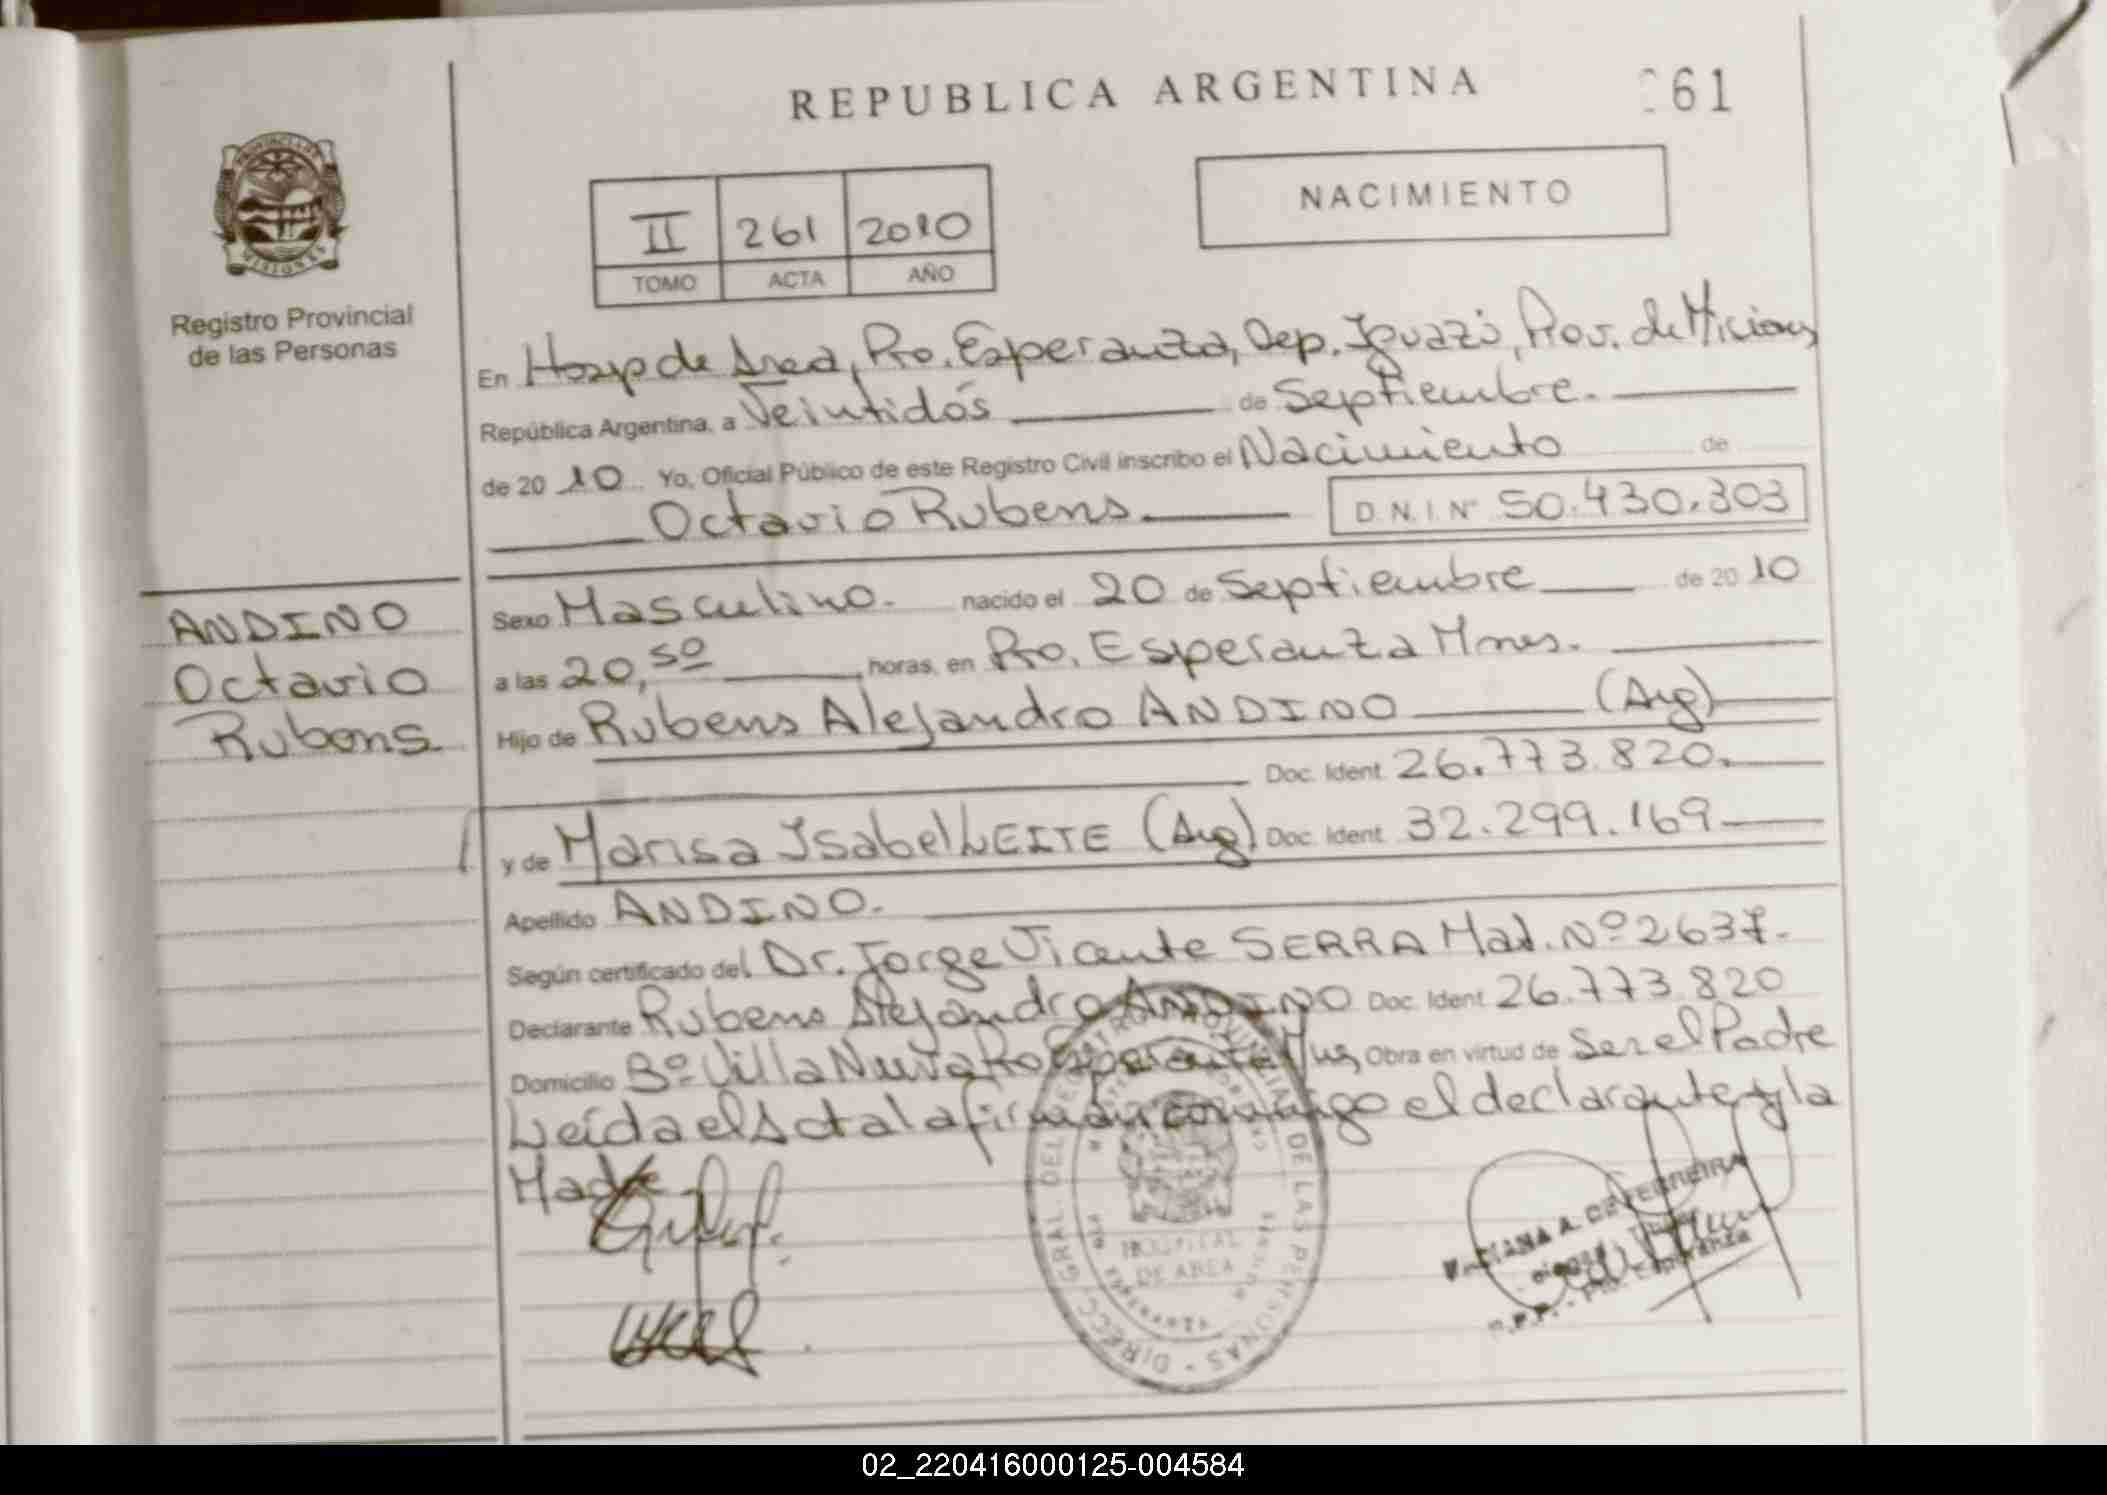 REPUBLICA ARGENTINA
261
PROVINCIA DE MISIONES
Registro Provincial
de las Personas
II 261 2010
TOMO ACTA AÑO
NACIMIENTO
En Hosp de Area, Pto. Esperanza, Dep. Iguazú, Prov. de Misiones
República Argentina, a Veintidós de Septiembre.
de 2010 Yo, Oficial Público de este Registro Civil inscribo el Nacimiento de
Octavio Rubens D.N.I. Nº 50.430.303
ANDINO
Octavio
Rubens
Sexo Masculino. nacido el 20 de Septiembre de 2010
a las 20,50 horas, en Pto. Esperanza Mnes.
Hijo de Rubens Alejandro ANDINO (Arg)
Doc. Ident. 26.773.820.
y de Marisa Isabel LEITE (Arg) Doc. Ident. 32.299.169
Apellido ANDINO.
Según certificado del Dr. Jorge Vicente SERRA Mat. Nº 2637.
Declarante Rubens Alejandro ANDINO Doc. Ident. 26.773.820
Domicilio Bº Villa Nueva Pto Esperanza Mnes, Obra en virtud de Ser el Padre
Leída el Acta la firman conmigo el declarante y la
Madre
DIRECC. GRAL. DEL REGISTRO PROVINCIAL DE LAS PERSONAS
HOSPITAL
DE AREA
A. DE FERREIRA
Titular
R.P.P. - Pto. Esperanza
02_220416000125-004584